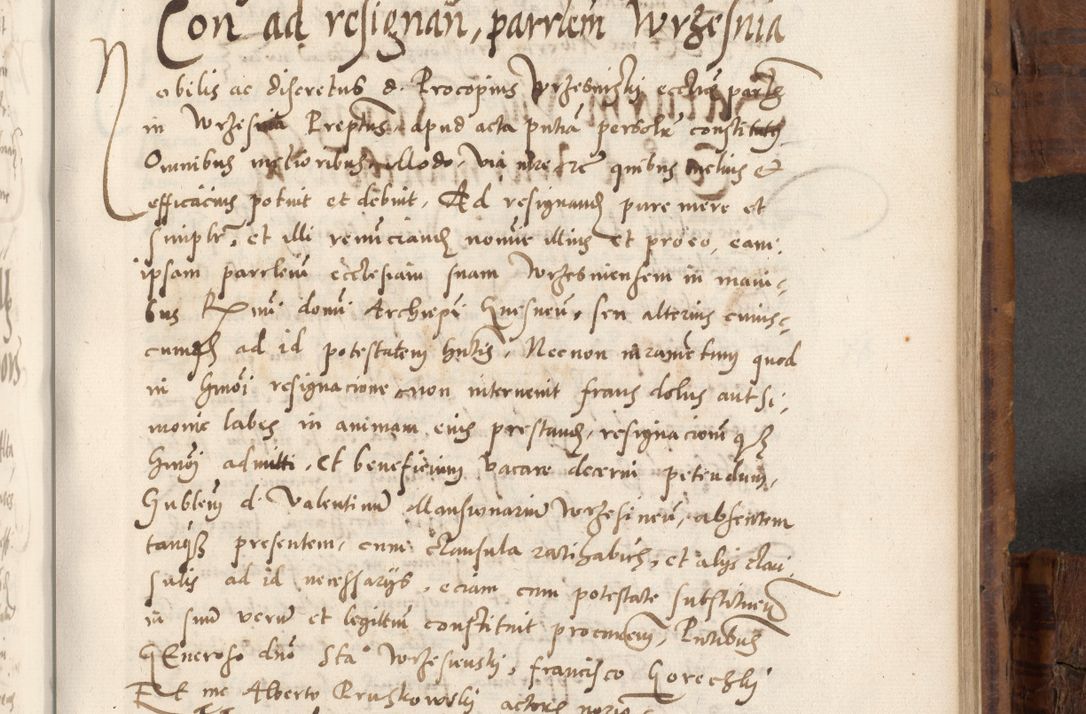 Con ad resignan, parrlem Wrzesnia
Nobilis ac discretus d. Procopius Wrzesniczki ecclie parlis
in Wrzesnia Preptus, apud acta pntia persolr constitutus
Omnibus melioribus Modo, via iure fre quibus melius &
efficacius potuit et debuit, Ad resignand pure mere et
simplr, et illi renunciand nomie illius et pro eo, eam
ipsam parrlem ecclesiam suam Wrzesniensem in mani-
bus Rmi domi Archiepi Gnesnen, seu alterius cuius-
cumq ad id potestatem hntis, Necnon iuramentum quod
in hmoi resignacione non interuenit fraus dolus aut si-
monie labes in animam eius prestand, resignacionu qz
hmoi admitti, Et beneficium vacare decerni petendum,
Hublem d. Valentinu Mansionariu Wrzesinen, absentem
tanqz presentem, cum clausula ratihabich, et alys clau-
sulis ad id necessarys, eciam cum potestate substituen
in suu veru et legittiu constituit procurem, Pntibus
GEneroso dno Sta Wrzesienski, francisco Gorechki
Et me Alberto Pruskowski actors norio